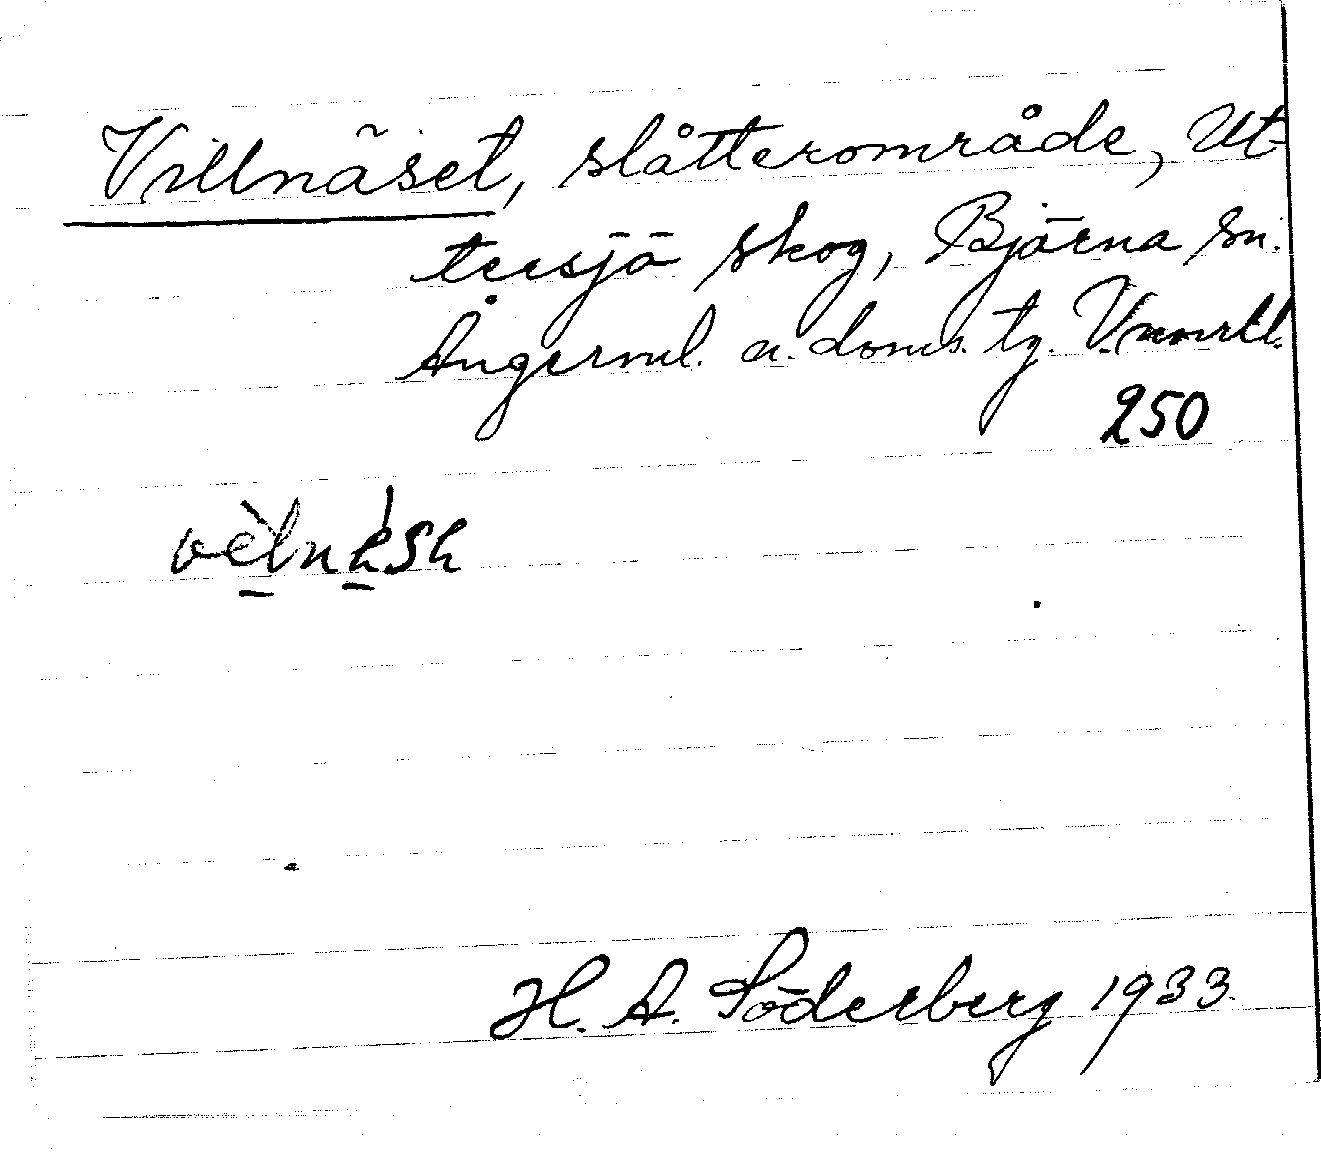 Villnäset, slåtterområde, Ut-
tersjö skog, Björna sn.
Ångerml. n. doms. tg. V.norrl.
250
H. A. Söderberg 1933.